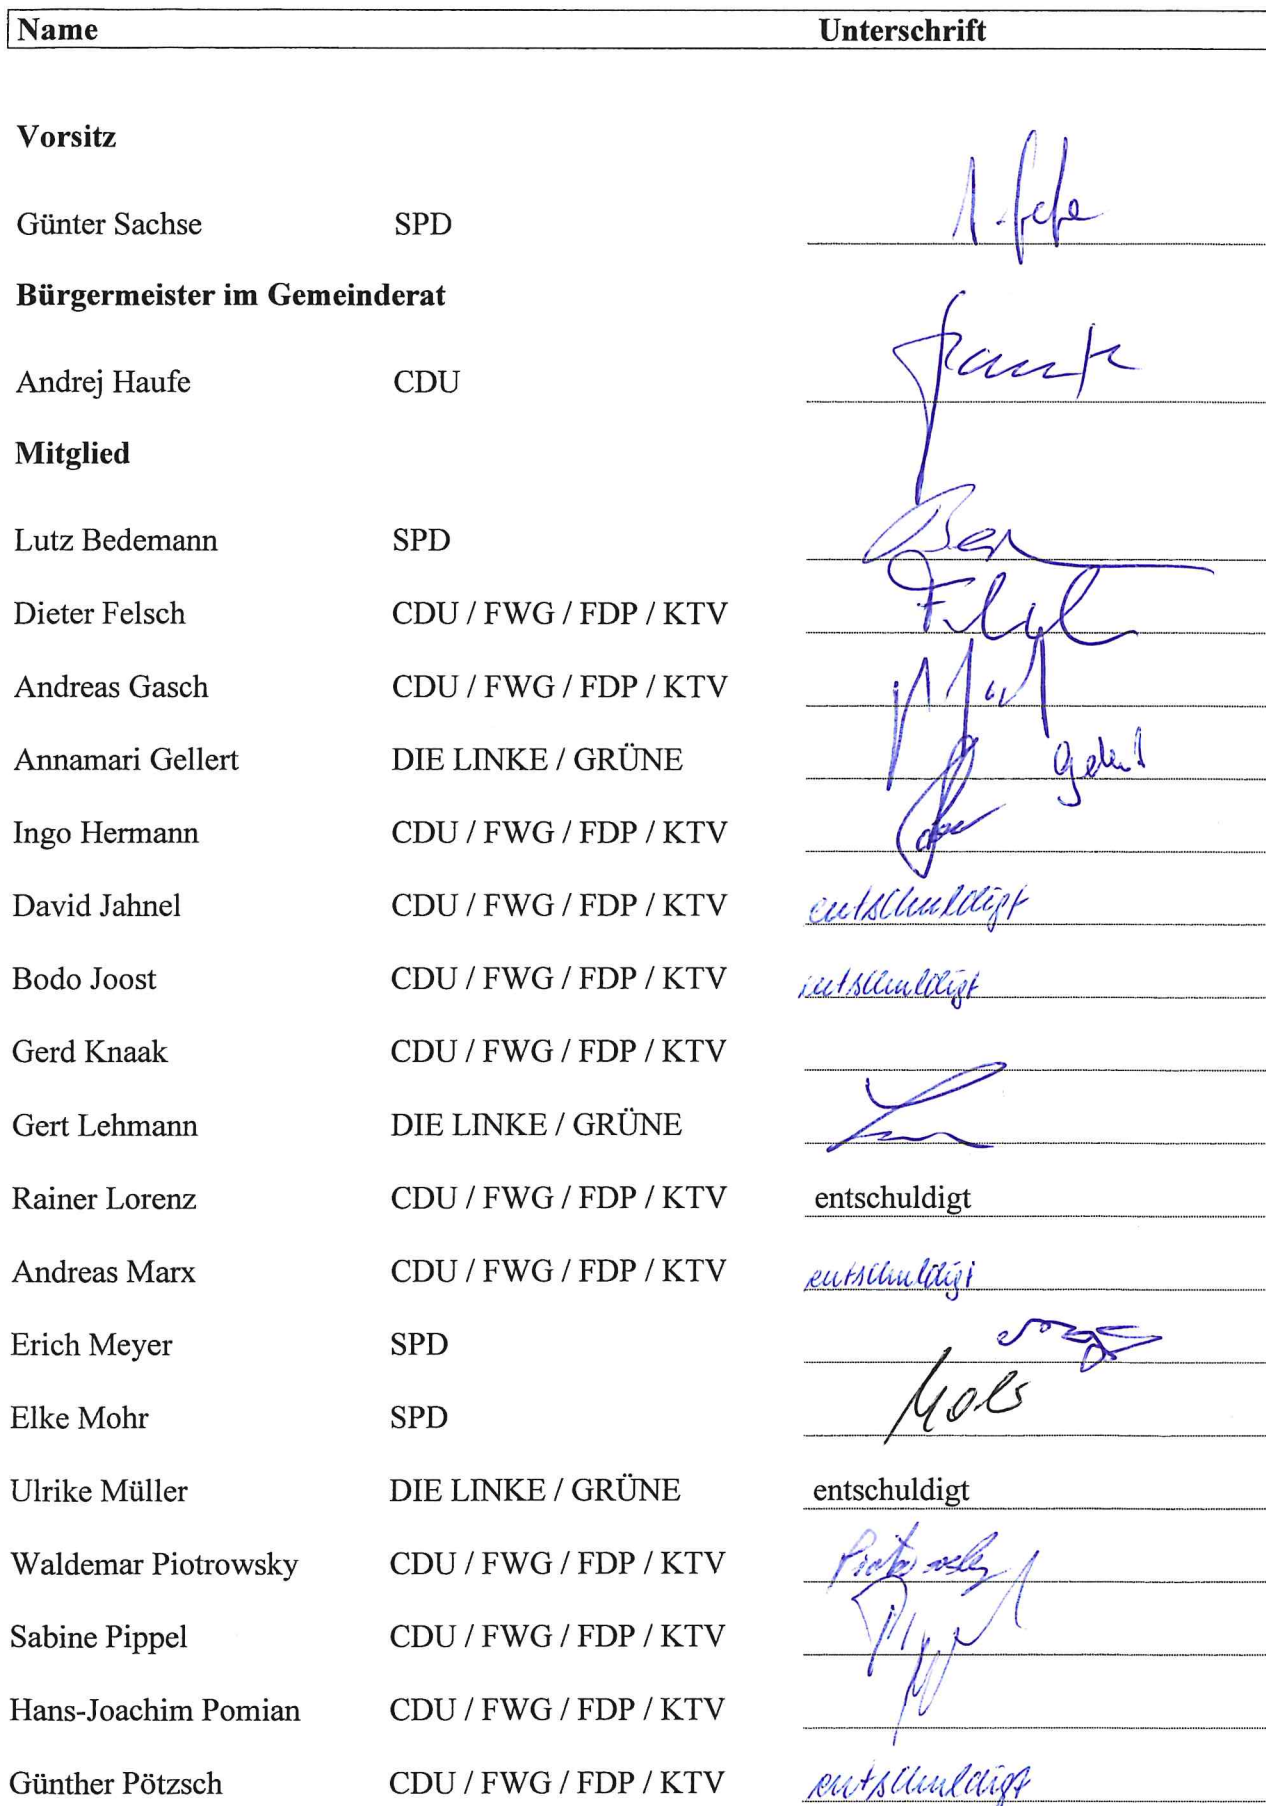 Name Unterschrift
Vorsitz
Günter Sachse SPD
Bürgermeister im Gemeinderat
Andrej Haufe CDU
Mitglied
Lutz Bedemann SPD
Dieter Felsch CDU / FWG / FDP / KTV
Andreas Gasch CDU / FWG / FDP / KTV
Annamari Gellert DIE LINKE / GRÜNE
Ingo Hermann CDU / FWG / FDP / KTV
David Jahnel CDU / FWG / FDP / KTV entschuldigt
Bodo Joost CDU / FWG / FDP / KTV entschuldigt
Gerd Knaak CDU / FWG / FDP / KTV
Gert Lehmann DIE LINKE / GRÜNE
Rainer Lorenz CDU / FWG / FDP / KTV entschuldigt
Andreas Marx CDU / FWG / FDP / KTV entschuldigt
Erich Meyer SPD
Elke Mohr SPD
Ulrike Müller DIE LINKE / GRÜNE entschuldigt
Waldemar Piotrowsky CDU / FWG / FDP / KTV
Sabine Pippel CDU / FWG / FDP / KTV
Hans-Joachim Pomian CDU / FWG / FDP / KTV
Günther Pötzsch CDU / FWG / FDP / KTV entschuldigt